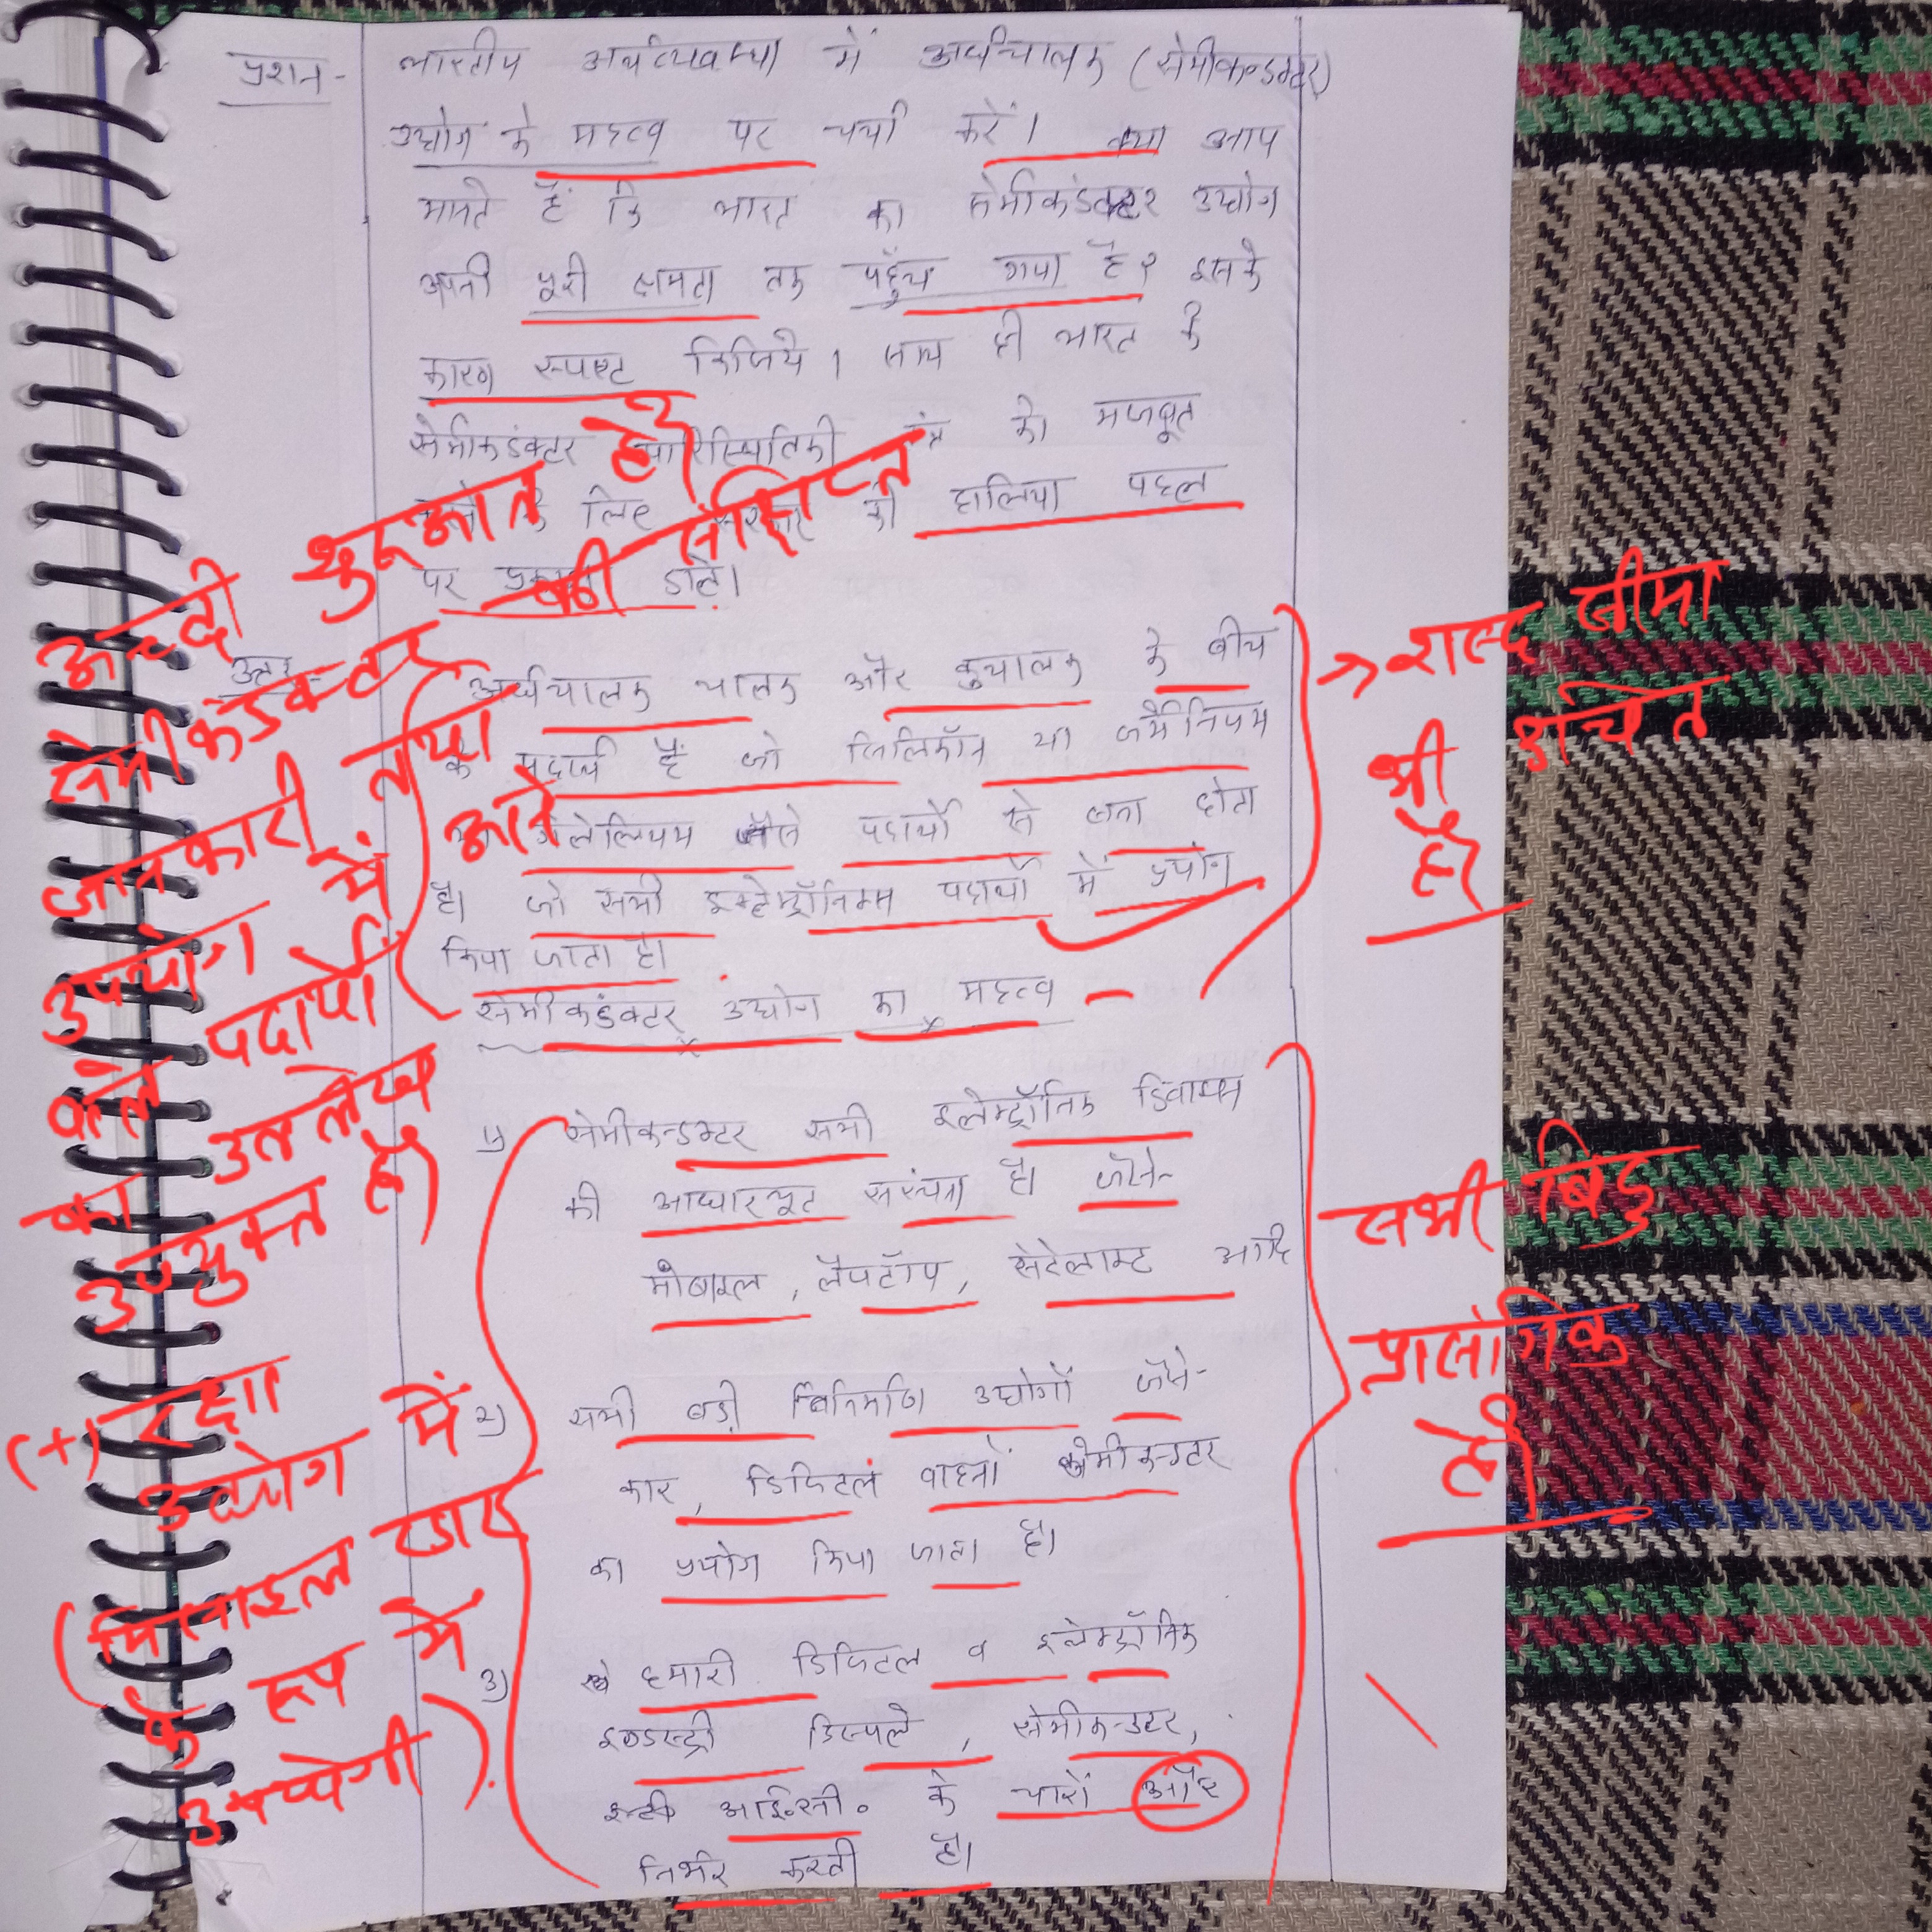 प्रशन- भारतीय अर्थव्यवस्था में अर्धचालक (सेमीकन्डक्टर)
उद्योग के महत्व पर चर्चा करें। क्या आप
मानते हैं कि भारत का सेमीकंडक्टर उद्योग
अपनी पूरी क्षमता तक पहुँच गया है? इसके
कारण स्पष्ट किजिये। साथ ही भारत के
सेमीकडंक्टर पारिस्थितिकी तंत्र को मजबूत
के लिए सरकार की हालिया पहल
पर प्रकाश डाले।
उत्तर- अर्धचालक चालक और कुचालक के बीच
के पदार्थ हैं जो सिलिकॉन या जर्मेनियम
गेलेलियम जैसे पदार्थो से बना होता
है। जो सभी इलेक्ट्रॉनिक्स पदार्थो में प्रयोग
किया जाता है।
सेमीकडंक्टर उद्योग का महत्व -
1) सेमीकन्डक्टर सभी इलेक्ट्रॉनिक डिवाइस
की आधारभूत संरचना है। जैसे-
मोबाइल, लैपटॉप, सेटेलाइट आदि
2) सभी बड़ी विनिर्माण उद्योगों जैसे-
कार, डिजिटल वाहनों सेमीकन्डक्टर
का प्रयोग किया जाता है।
3) हमारी डिजिटल व इलेक्ट्रॉनिक
इण्डस्ट्री डिस्पले, सेमीकन्डक्टर,
आई.सी. के चारों और
निर्भर करती है।
अच्छी शुरूआत है।
सेमीकंडक्टर की संक्षिप्त
जानकारी तथा
उपयोग में आने
वाले पदार्थों
का उल्लेख
उपयुक्त है।
(+) रक्षा
उद्योग में
(मिसाइल रडार
के रूप में
उपयोगी).
→ शब्द सीमा
भी उचित
है।
सभी बिंदु
प्रासंगिक
है।